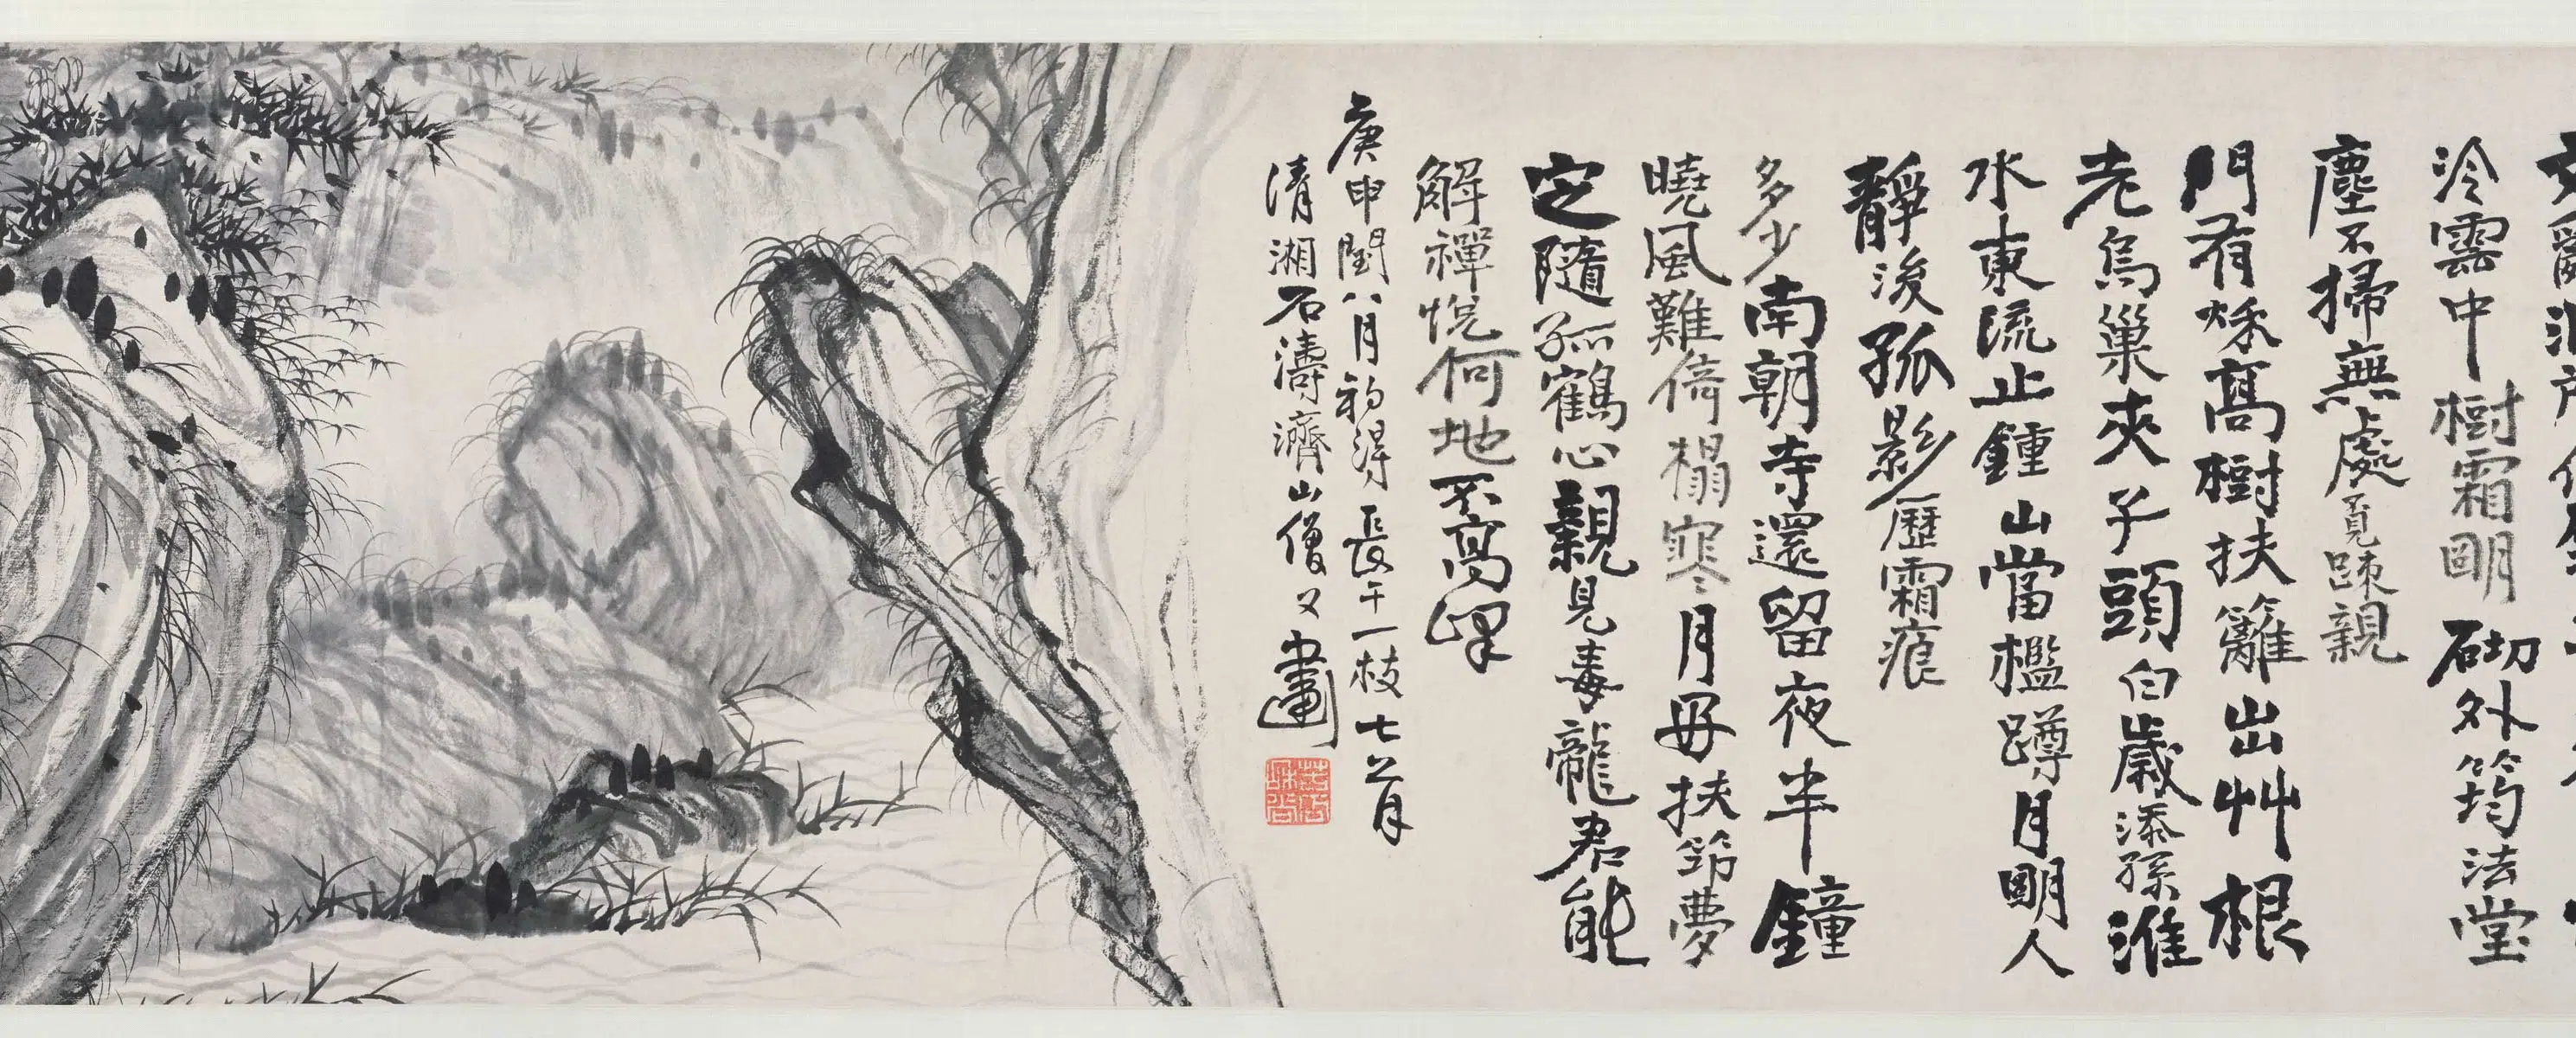 冷雲中樹霜明砌外筠法堂
塵不掃無處覓踈親
門有秝高樹扶籬出艸根
老烏巢夾子頭白歲添孫淮
水東流止鍾山當檻蹲月明人
靜後孤影歷霜痕
多少南朝寺還留夜半鐘
曉風難倚榻寒月毋扶筇夢
定隨孤鶴心親見毒龍君能
解禪悅何地不高峰
庚申閏八月初得長干一枝七首
清湘石濤濟山僧又畫